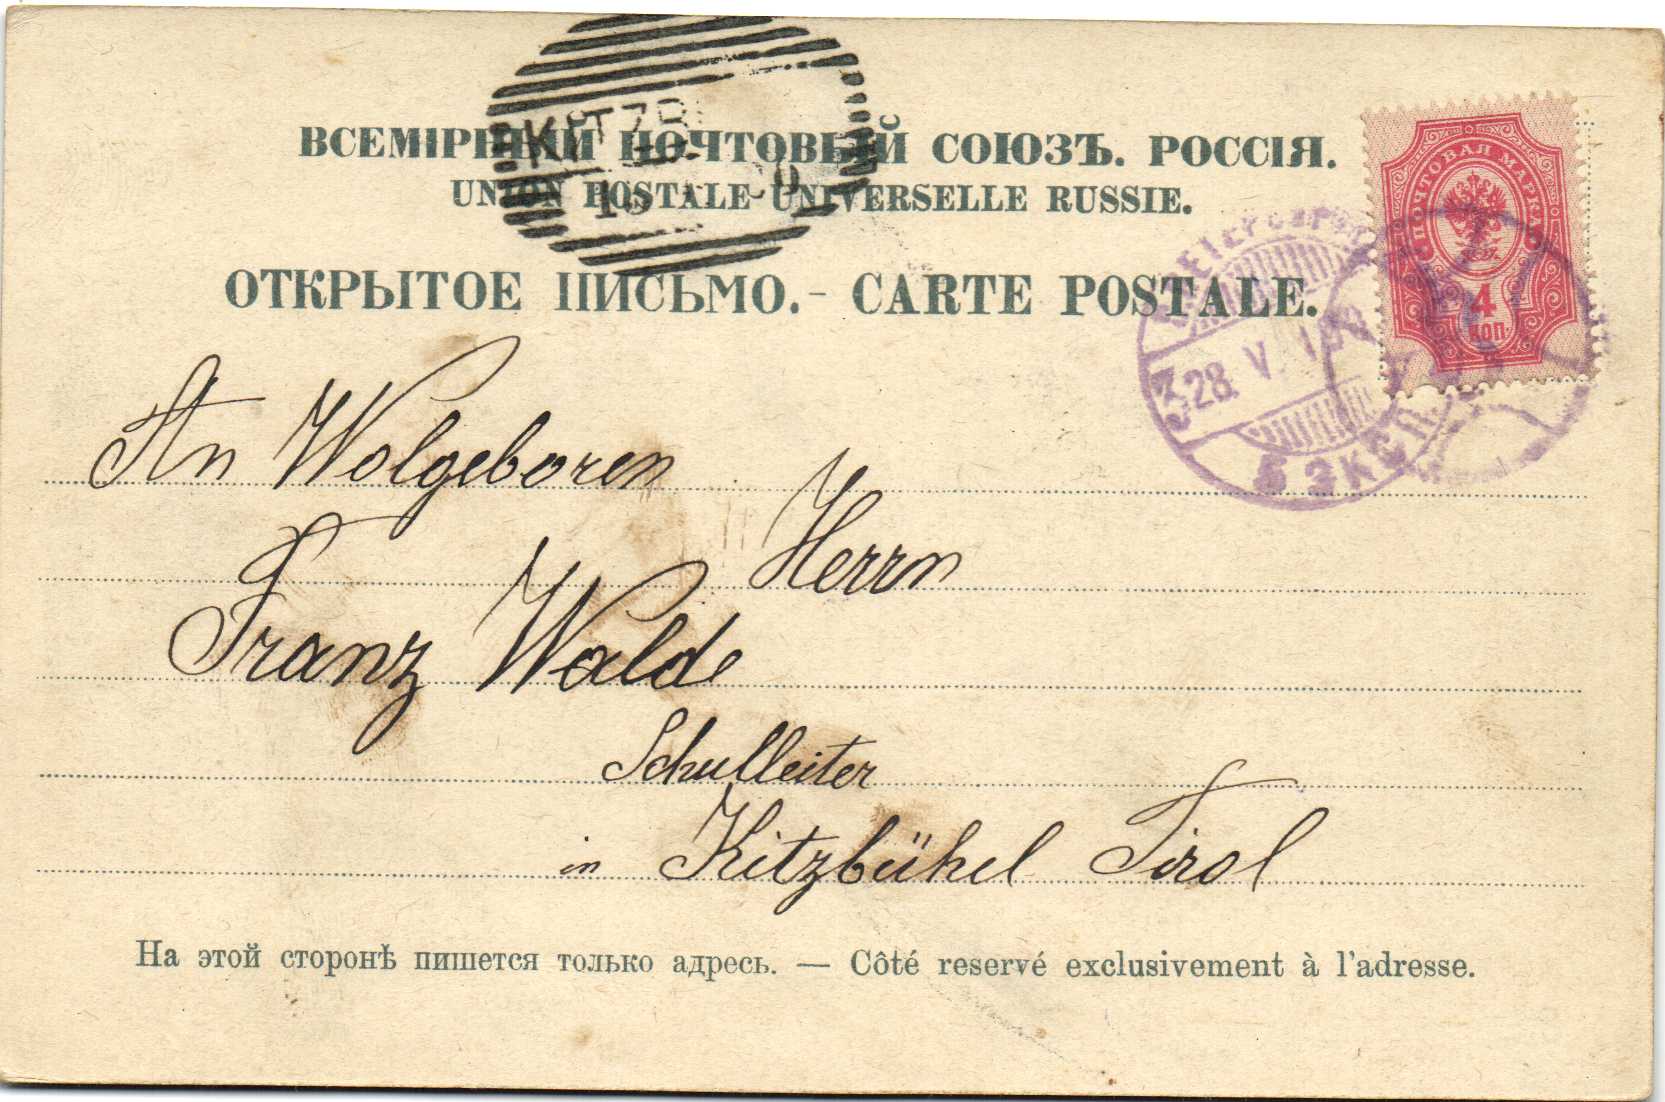 ВСЕМІРНЫЙ ПОЧТОВЫЙ СОЮЗЪ. РОССІЯ.
UNION POSTALE UNIVERSELLE RUSSIE.
ОТКРЫТОЕ ПИСЬМО. - CARTE POSTALE.
ПОЧТОВАЯ МАРКА
4
КОП.
28. V.
3
5 ЭКСП.
An Wolgeboren
Herrn
Franz Walde
Schulleiter
in Kitzbühel Tirol
На этой сторонѣ пишется только адресь. — Côté reservé exclusivement à l'adresse.